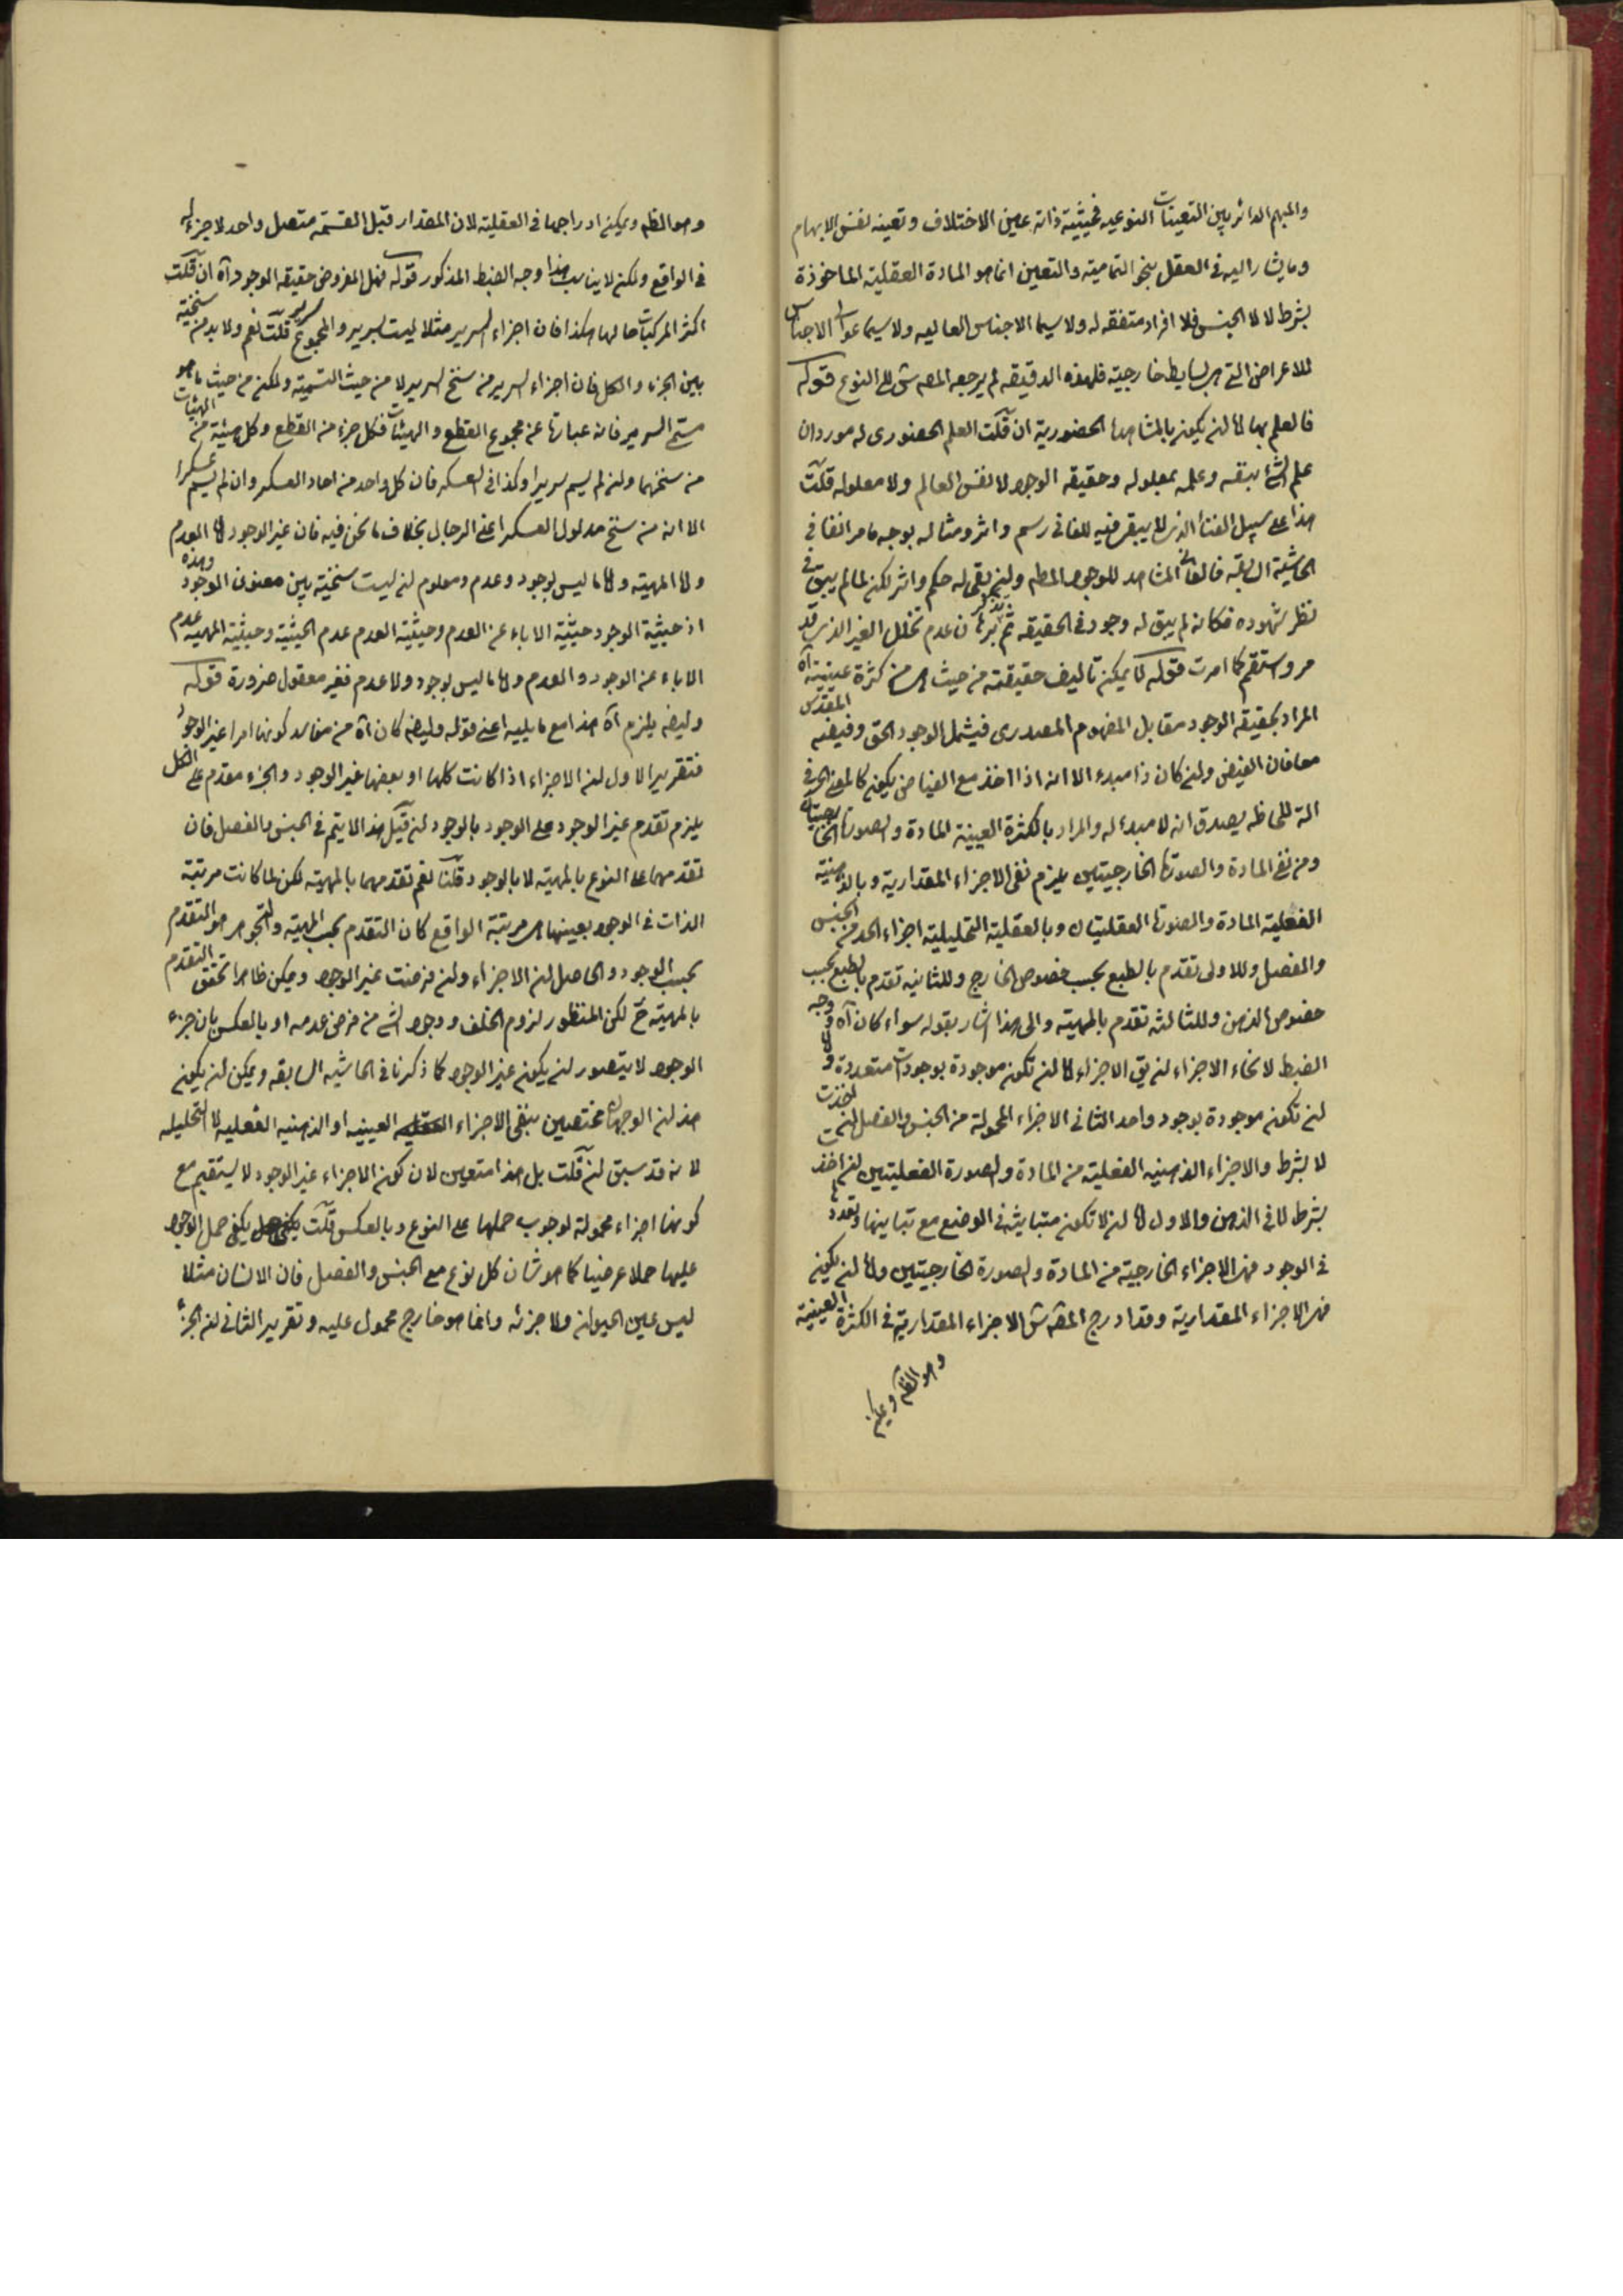 والمبهم الدائر بين التعينات النوعيه فحيثية ذاته عين الاختلاف وتعينه نفس الابهام
وما يشار اليه فى العقل بنحو التمامية والتعين انما هو المادة العقلية الماخوذة
بشرط لا لا الجنس فلا افراد متفقه له ولا سيما الاجناس العاليه ولا سيما عوالى الاجناس
للاعراض التى هى بسايط خارجية فلهذه الدقيقه لم يرجعه المصه ش الى النوع قوله
فالعلم بها اما ان يكون بالمشاهدة الحضورية ان قلت العلم الحضورى له موردان
علم الشئ بنفسه وعلمه بمعلوله وحقيقه الوجود لا نفس العالم ولا معلوله قلت
هذا على سبيل الفناء الذى لا يبقى فيه للفانى رسم واثر ومثاله بوجه ما مر انفا فى
الحاشية السابقة فالفانى المشاهد للوجود المطه وان بقى له حكم واثر لكن لما لم يبق فى
نظر شهوده فكانه لم يبق له وجود فى الحقيقه ثم تذكر ان عدم تخلل الغير الذى قد
مر واستقم كما امرت قوله لا يمكن تاليف حقيقته من حيث هى من كثرة عينية آه
المراد بحقيقه الوجود مقابل المفهوم المصدرى فيشمل الوجود الحق وفيضه المقدس
معا فان الفيض وان كان ذا مبدء الا انه اذا اخذ مع الفياض يكون كالمعنى الحرفى
الة للحاظه يصدق انه لا مبدء له والمراد بالكثرة العينية المادة والصورة الخارجيتان
ومن نفى المادة والصورة الخارجيتين يلزم نفى الاجزاء المقدارية وبالذهنية
الفعلية المادة والصورة العقليتان وبالعقلية التحليلية اجزاء الحد من الجنس
والفصل وللاولى تقدم بالطبع بحسب خصوص الخارج وللثانيه تقدم بالطبع بحسب
خصوص الذهن وللثالثه تقدم بالمهية والى هذا اشار بقوله سواء كان آه ووجه
الضبط لانحاء الاجزاء ان يق الاجزاء اما ان تكون موجودة بوجودات متعددة واما
ان تكون موجودة بوجود واحد الثانى الاجزاء المحمولة من الجنس والفصل ان اخذت
لا بشرط والاجزاء الذهنيه الفعلية من المادة والصورة الفعليتين ان اخذت
بشرط لا فى الذهن والاول اما ان لا تكون متباينة فى الوضع مع تباينها وتعددها
فى الوجود فهى الاجزاء الخارجية من المادة والصورة الخارجيتين واما ان يكون
فهى الاجزاء المقدارية وقد ادرج المصه ش الاجزاء المقدارية فى الكثرة العينية
وهو الظه ويمكن
وهو الظه ويمكن ادراجها فى العقلية لان المقدار قبل القسمة متصل واحد لا جزء له
فى الواقع ولكن لا يناسب هذا وجه الضبط المذكور قوله فهل المفروض حقيقه الوجود آه ان قلت
اكثر المركبات حالها هكذا فان اجزاء السرير مثلا ليست بسرير والمجموع سرير قلت نعم ولا بد من سنخية
بين الجزء والكل فان اجزاء السرير من سنخ السرير لا من حيث التسمية ولكن من حيث ما هو
مسمى السرير فانه عبارة عن مجموع القطع والهيئات فكل جزء من القطع وكل هيئة من الهيئات
من سنخها وان لم يسم سريرا وكذا فى العسكر فان كل واحد من احاد العسكر وان لم يسم عسكرا
الا انه من سنخ مدلول العسكر اعنى الرجال بخلاف ما نحن فيه فان غير الوجود اما العدم
واما المهية واما ما ليس بوجود وعدم ومعلوم ان ليست سنخية بين معنون الوجود وهذه
اذ حيثية الوجود حيثية الاباء عن العدم وحيثية العدم عدم الحيثية وحيثية المهية عدم
الاباء عن الوجود والعدم واما ما ليس بوجود ولا عدم فغير معقول ضرورة قوله
وايضه يلزم آه هذا مع ما يليه اعنى قوله وايضه كان آه من مفاسد كونها امرا غير الوجود
فتقرير الاول ان الاجزاء اذا كانت كلها او بعضها غير الوجود والجزء مقدم على الكل
يلزم تقدم غير الوجود على الوجود بالوجود ان قيل هذا لا يتم فى الجنس والفصل فان
تقدمهما على النوع بالمهية لا بالوجود قلنا نعم تقدمهما بالمهية لكن لما كانت مرتبة
الذات فى الوجود بعينها هى مرتبة الواقع كان التقدم بحسب المهية والتجوهر هو التقدم
بحسب الوجود والحاصل ان الاجزاء وان فرضت غير الوجود ويمكن ظاهرا تحقق التقدم
بالمهية ح لكن المنظور لزوم الخلف ووجود الشئ من فرض عدمه او بالعكس بان جزء
الوجود لا يتصور ان يكون غير الوجود كما ذكرنا فى الحاشيه السابقه ويمكن ان يكون
هذان الوجهان مختصين بنفى الاجزاء العينيه او الذهنيه الفعليه لا التحليليه
لانه قد سبق ان قلت بل هذا متعين لان كون الاجزاء غير الوجود لا يستقيم مع
كونها اجزاء محمولة لوجوب حملها على النوع وبالعكس قلت يكفى حمل الوجود
عليها حملا عرضيا كما هو شان كل نوع مع الجنس والفصل فان الانسان مثلا
ليس عين الحيوان ولا جزئه وانما هو خارج محمول عليه وتقرير الثانى ان الجزء